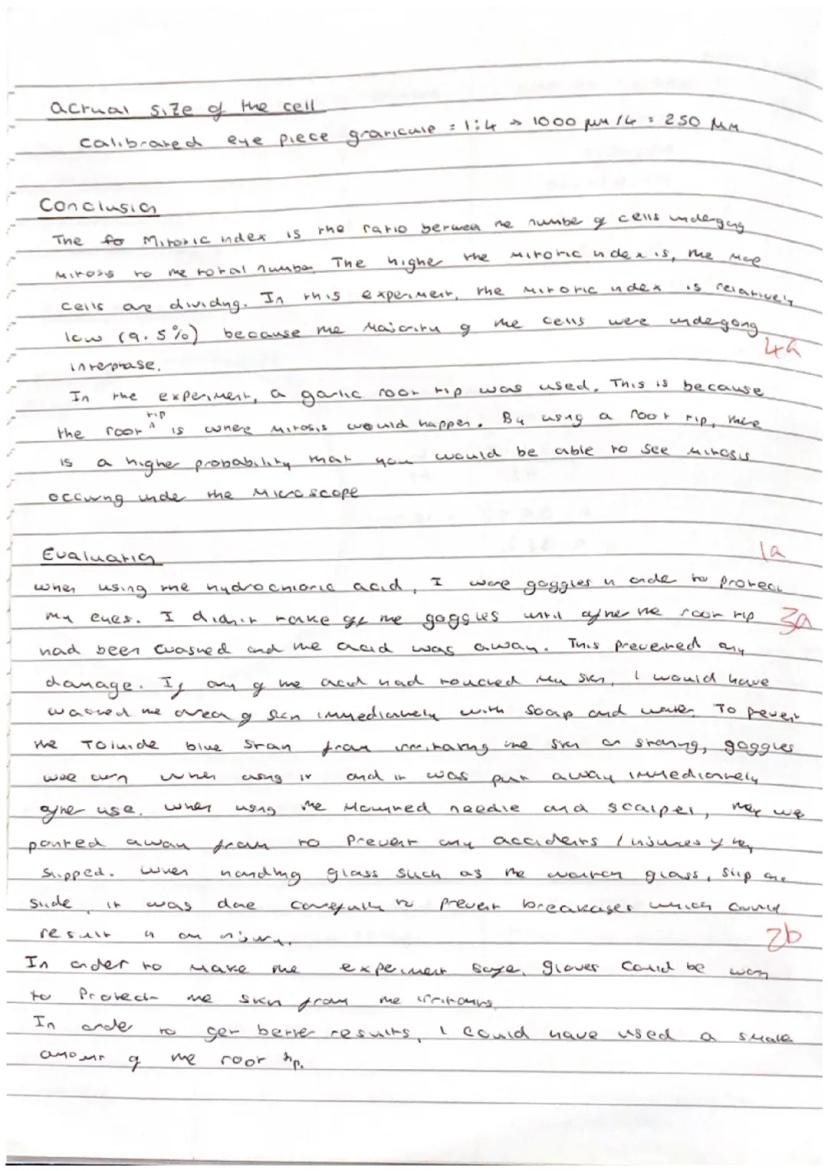 actual size of the cell
calibrated eye piece graticule = 1:4 → 1000 μm / 4 = 250 μm
Conclusion
The fo Mitotic index is the ratio between the number of cells undergoing
mitosis to the total number. The higher the mitotic index is, the more
cells are dividing. In this experiment, the mitotic index is relatively
low (9.5%) because the majority of the cells were undergoing
4a
interphase.
In the experiment, a garlic root tip was used. This is because
the root tip is where mitosis would happen. By using a root tip, there
is a higher probability that you would be able to see mitosis
occuring under the microscope
1a
Evaluation
When using the hydrochloric acid, I wore goggles in order to protect
my eyes. I didn't take off the goggles until after the root tip
3a
had been washed and the acid was away. This prevented any
damage. If any of the acid had touched my skin, I would have
washed the area of skin immediately with soap and water. To prevent
the Toluide blue stain from irritating the skin or staining, goggles
were worn when using it and it was put away immediately
after use. When using the mounted needle and scalpel, they were
pointed away from to prevent any accidents / injuries if they
slipped. When handling glass such as the watch glass, slip and
slide, it was done carefully to prevent breakages which could
result in an injury.
2b
In order to make the experiment safe, gloves could be worn
to protect the skin from the irritants.
In order to get better results, I could have used a smaller
amount of the root tip.